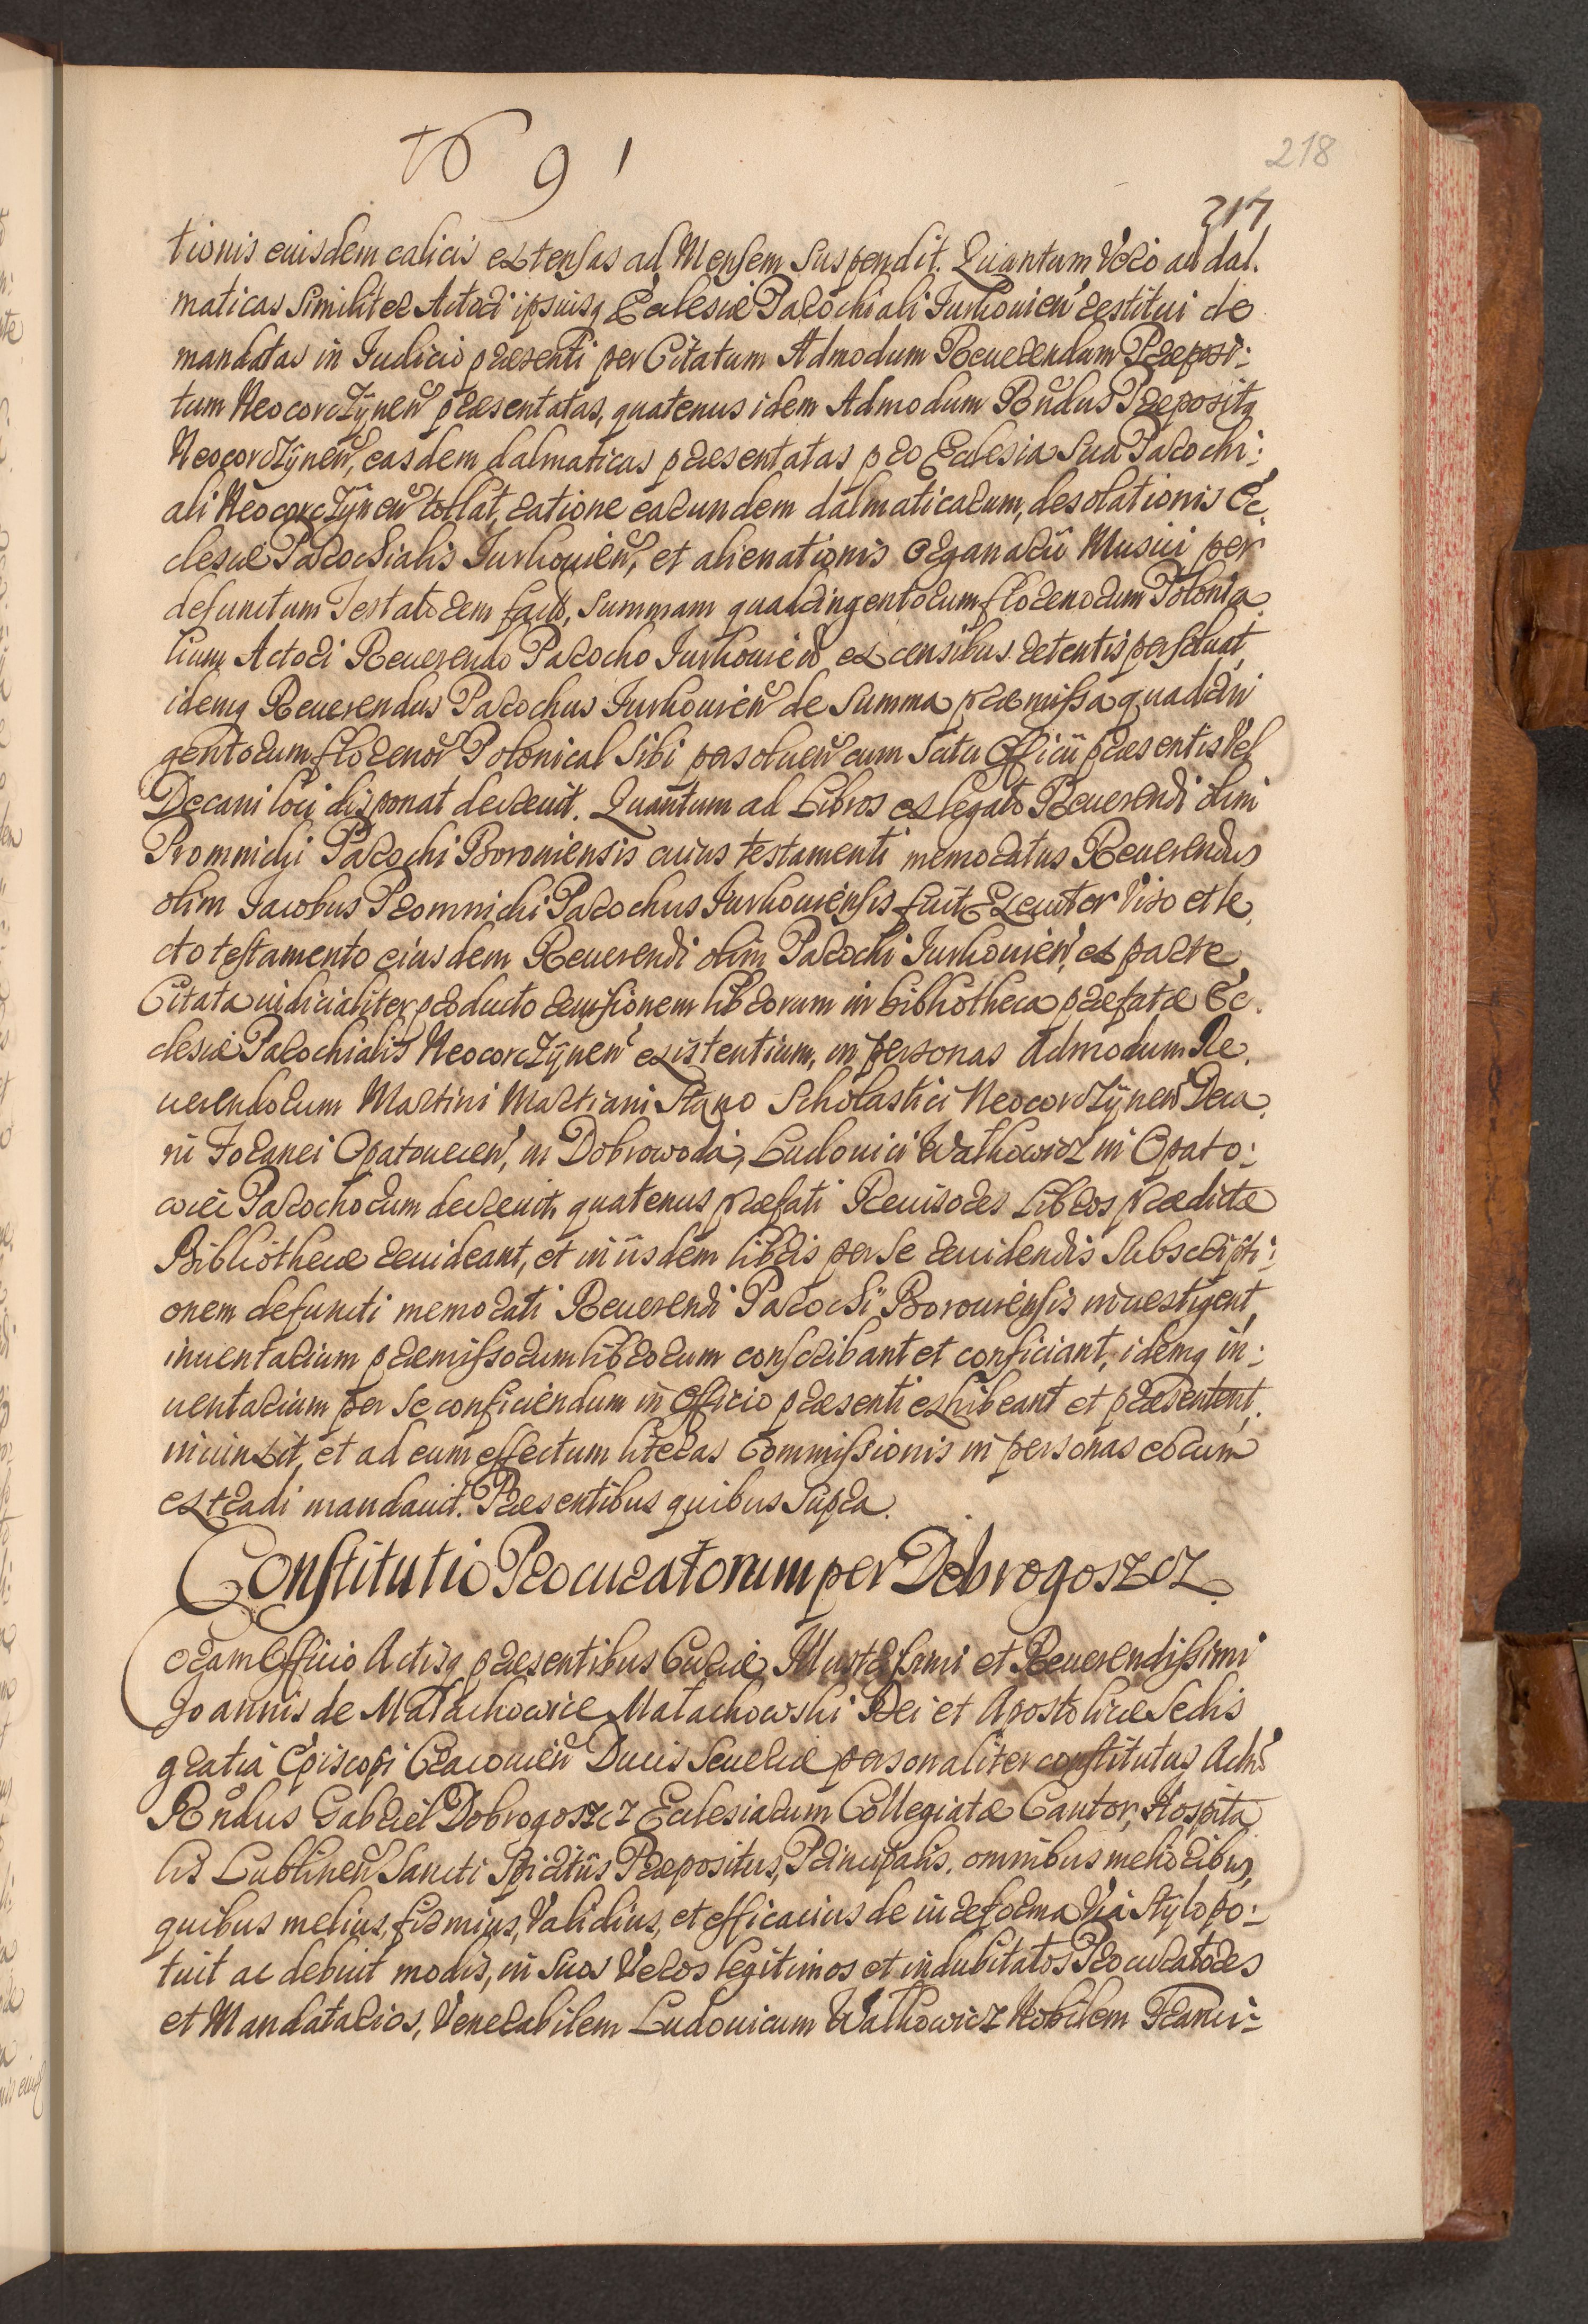 1691
218
217
tionis eiusdem calicis extensas ad Mensem suspendit. Quantum Vero ad dal.
maticas similiter Actori ipsiusq Ecclesiæ Parochiali Jurkouien̄ restitui de
mandatas in Judicio præsenti per Citatum Admodum Reuerendum Præposi:
tum Neocorczÿnen̄ præsentatas, quatenus idem Admodum Rn̄dus Præpositq
Neocorczÿnen̄, easdem dalmaticas præsentatas pro Ecclesia sua Parochi:
ali Neocorczÿnen̄ tollat, ratione earundem dalmaticarum, desolationis Ec.
clesiæ Parochialis Jurkouien̄, et alienationis organarÿ Musici per
defunctum Testatorem facto, summam quadringentorum florenorum Polonica.
lium Actori Reuerendo Parocho Jurkouien̄ ex censibus retentis persoluat,
idemq Reuerendus Parochus Jurkouien̄ de summa præmissa quadrin
gentorum florenor̄ Polonical sibi persoluen̄ cum scitu Officii præsentis Vel
Decani loci disponat decreuit. Quantum ad Libros ex legato Reuerendi olim
Promnicki Parochi Borouiensis cuius testamenti memoratus Reuerendus
olim Jacobus Promnicki Parochus Jurkouiensis fuit Executor Viso et le.
cto testamento eiusdem Reuerendi olim Parochi Jurkouien̄, ex parte
Citata iudicialiter producto reuisionem librorum in bibliotheca præfatæ Ec.
clesiæ Parochialis Neocorczÿnen̄ existentium, in personas Admodum Re.
uerendorum Martini Martiani Stano Scholastici Neocorczÿnen̄ Deca.
ni Foranei Opatouecen̄, in Dobrowoda, Ludouici Walkowicz in Opato:
wiec Parochorum decreuit, quatenus præfati Reuisores Libros prædictæ
Bibliothecæ reuideant, et in iisdem libris per se reuidendis subscripti:
onem defuncti memorati Reuerendi Parochi Borouiensis inuestigent,
inuentarium præmissorum librorum conscribant et conficiant, idemq in:
uentarium per se conficiendum in Officio præsenti exhibeant et præsentent,
iniunxit, et ad eum effectum literas Commissionis in personas eorum
extradi mandauit. Præsentibus quibus supra.
Constitutio Procuratorum per Dobrogoszcz.
Coram Officio Actisq præsentibus Curiæ Illustrissimi et Reuerendissimi
Joannis de Małachowice Małachowski Dei et Apostolicæ Sedis
gratia Episcopi Cracouien̄ Ducis Seueriæ personaliter constitutus Adm̄
Rn̄dus Gabriel Dobrogoszcz Ecclesiarum Collegiatæ Cantor, Hospita
lis Lublinen̄ Sancti Spiritūs Præpositus, Principalis, omnibus melioribus,
quibus melius, firmius, Validius, et efficacius de iure forma Via stylo po:
tuit ac debuit modis, in suos Veros legitimos et indubitatos Procuratores
et Mandatarios, Venerabilem Ludouicum Walkowicz Nobilem Franci: